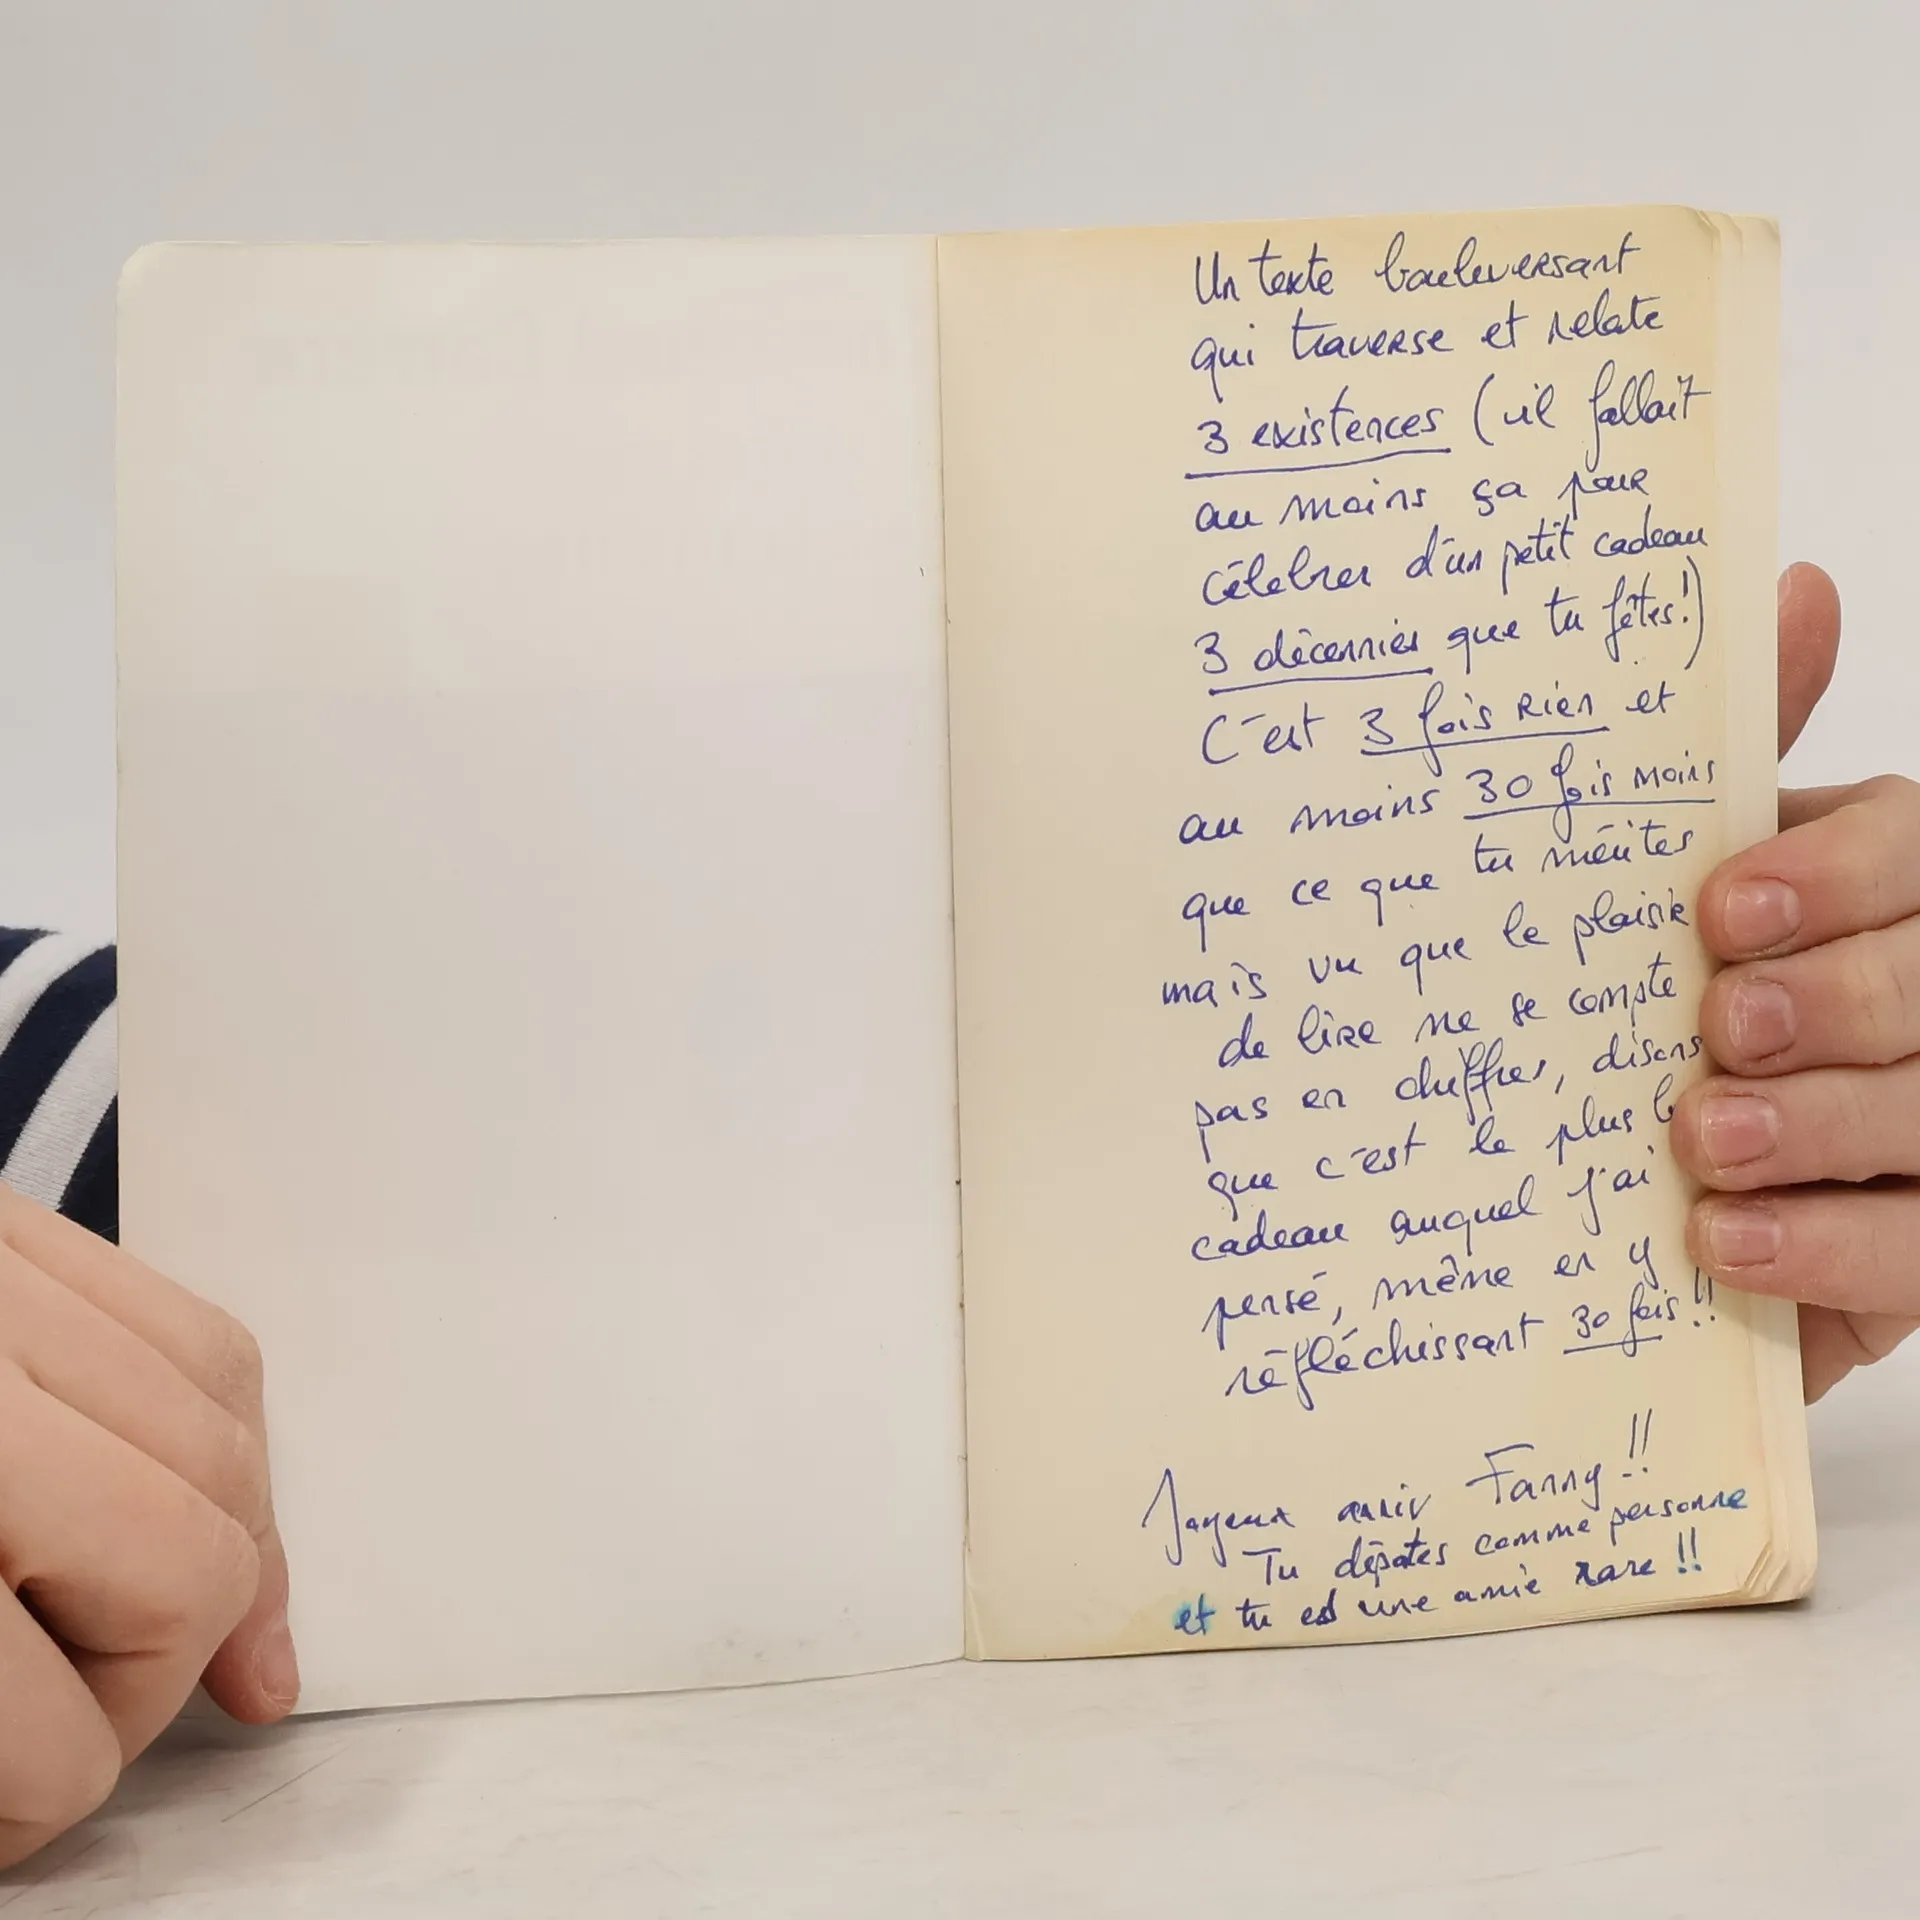 Un texte bouleversant
qui traverse et relate
3 existences (il fallait
au moins ça pour
célébrer d'un petit cadeau
3 décennies que tu fêtes!)
C'est 3 fois rien et
au moins 30 fois moins
que ce que tu mérites
mais vu que le plaisir
de lire ne se compte
pas en chiffres, disons
que c'est le plus
cadeau auquel j'ai
pensé, même en y
réfléchissant 30 fois!!
Joyeux anniv Fanny!!
Tu dépotes comme personne
et tu es une amie rare!!